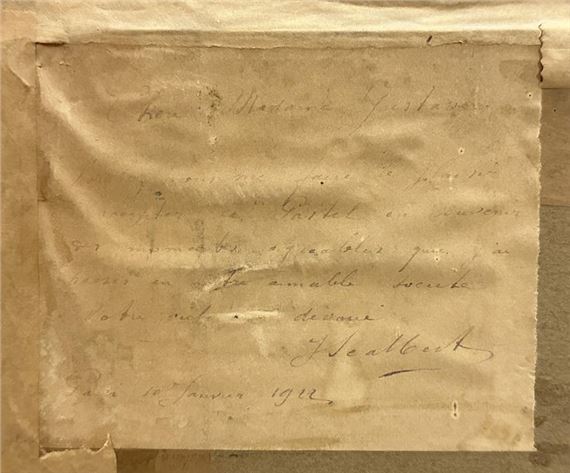 Chère Madame Gustave
me faire le plaisir
accepter ce Pastel en souvenir
des moments agréables que j'ai
passés en votre aimable société
Votre dévoué
J Scalbert
Paris 10 Janvier 1922